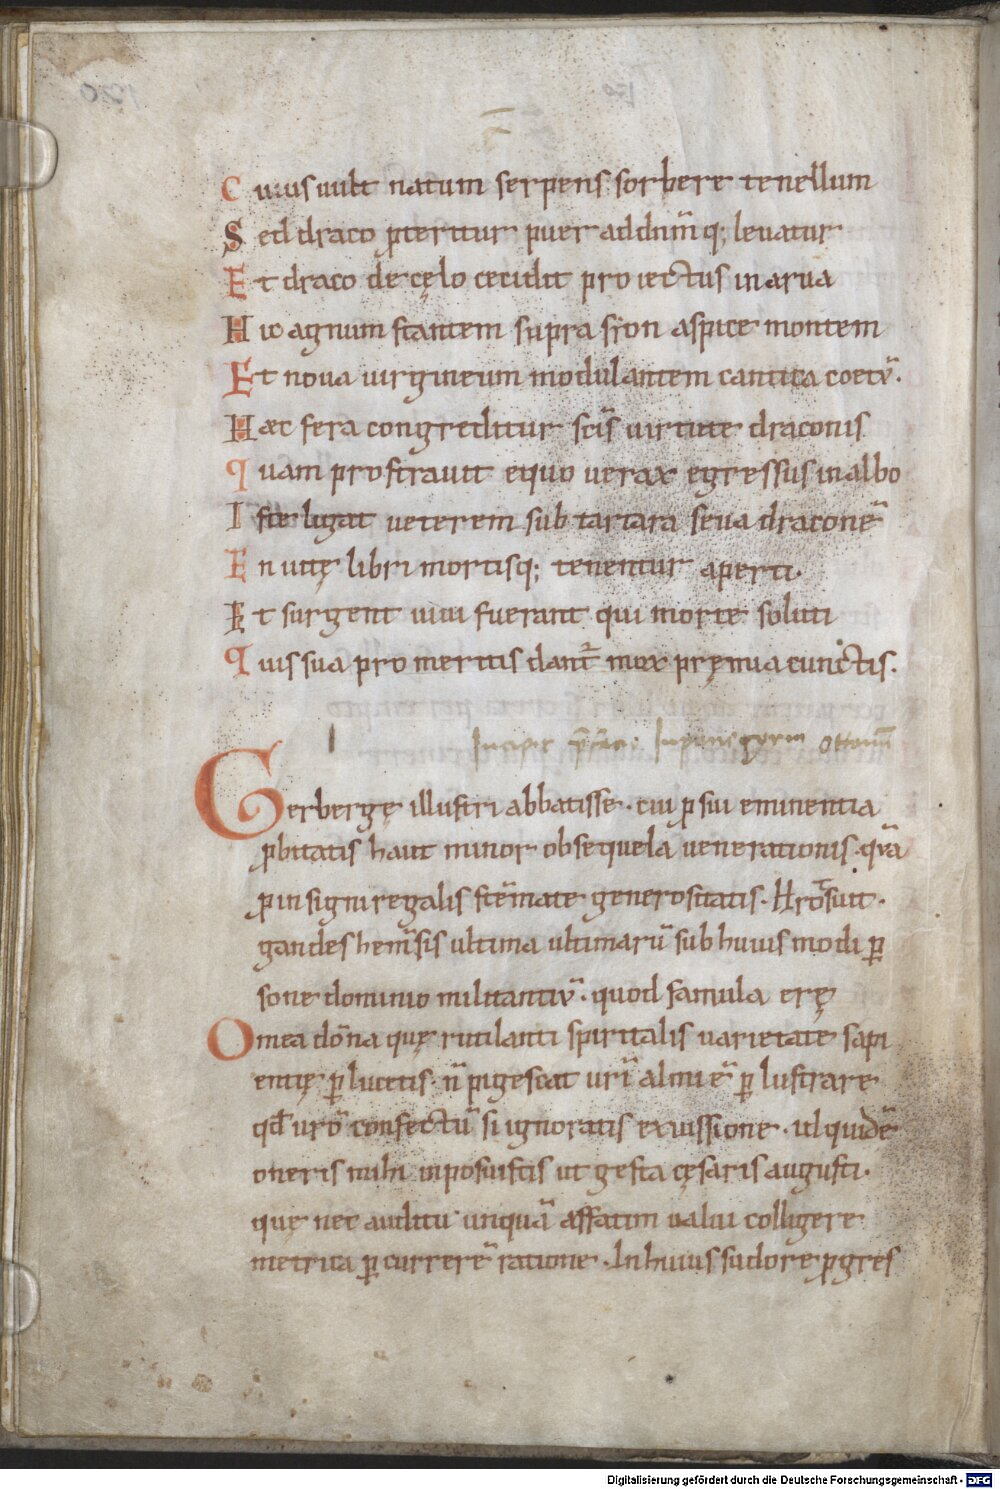 Cuius uult natum serpens sorbere tenellum
Sed draco pteritur puer addnm̄ q; leuatur
Et draco de cęlo cecidit proiectus in arua
Hic agnum stantem supra syon aspice montem
Et noua uirgineum modulantem cantica coetū.
Haec fera congreditur scīs uirtute draconis
quam prostrauit equo uerax egressus in albo
Iste ligat ueterem sub tartara seua draconē
En uitę libri mortisq; tenentur aperti.
Et surgent uiui fuerant qui morte soluti
quis sua pro meritis dant̄ mox pręmia cunctis.
Incipit
Gerbergę illustri abbatisse. cui p sui eminentia
pbitatis haut minor obsequela uenerationis. quā
p insigni regalis stēmate generositatis. Hrotsuit.
gandeshem̄sis ultima ultimarū sub huius modi p̄
sone dominio militantiū. quod famula erę
O mea dōna quę rutilanti spiritalis uarietate sapi
entię p̄lucetis. n̄ pigescat urī almiē p̄lustrare
qđ urō confectū si ignoratis ex iussione. id quidē
oneris mihi inposuistis ut gesta cęsaris augusti.
que nec auditu unquā affatim ualui colligere
metrica p̄currerē ratione. In huius sudore pgres
Digitalisierung gefördert durch die Deutsche Forschungsgemeinschaft - DFG